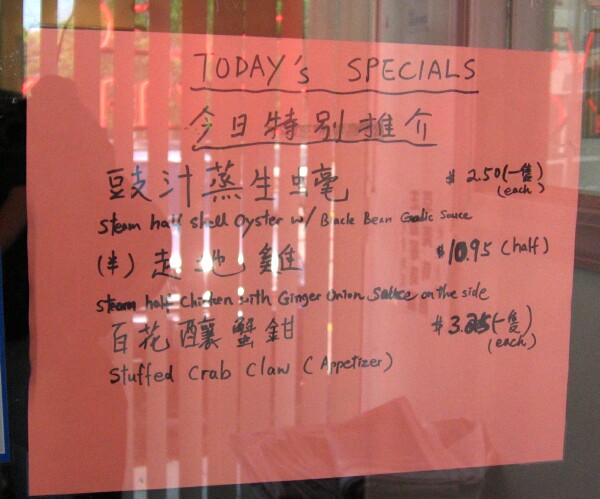 TODAY's SPECIALS
今日特別推介
豉汁蒸生蠔 $2.50(一隻)
(each)
Steam half shell Oyster w/ Black Bean Garlic Sauce
(半) 走地雞 $10.95 (half)
Steam half Chicken with Ginger Onion Sauce on the side
百花釀蟹鉗 $3.25(一隻)
(each)
Stuffed Crab Claw (Appetizer)